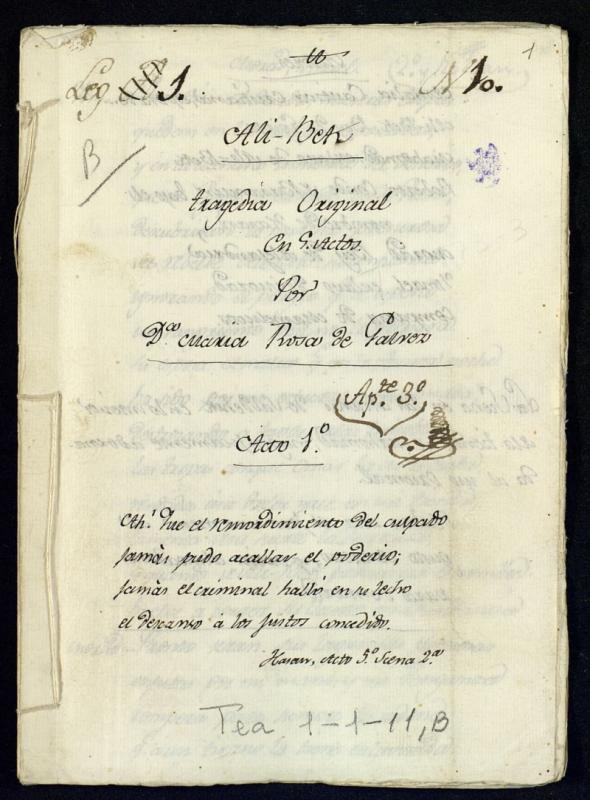 1
Leg 1.
N 10.
B
Ali-Bek
tragedia Original
En 5. Actos.
Por
D.ª Maria Rosa de Galvez
Ap.te 3.º
Acto 1.º
Ah! que el remordimiento del culpado
jamàs pudo acallar el poderio;
jamàs el criminal halló en su lecho
el descanso à los justos concedido.
Hasan, Acto 5.º Scena 2.ª
Tea 1-1-11, B